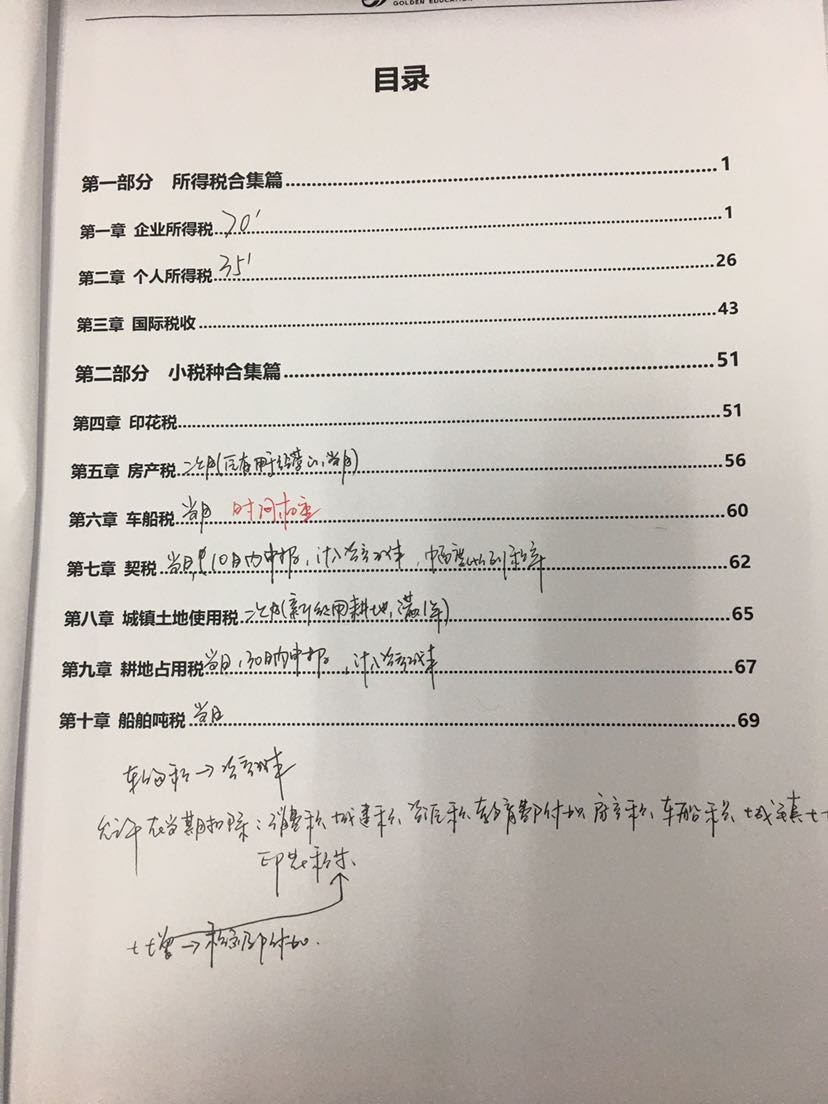 GOLDEN EDUCATION
目录
第一部分 所得税合集篇 1
第一章 企业所得税 20' 1
第二章 个人所得税 35' 26
第三章 国际税收 43
第二部分 小税种合集篇 51
第四章 印花税 51
第五章 房产税 次月(自有用于经营的,当月) 56
第六章 车船税 当月 时间 60
第七章 契税 当日,10日内申报,计入资产成本, 税率 62
第八章 城镇土地使用税 次月(新征用耕地,满1年) 65
第九章 耕地占用税 当日,30日内申报,计入资产成本 67
第十章 船舶吨税 当日 69
车购税→资产成本
允许在当期扣除:消费税、城建税、资源税、教育费附加、房产税、车船税、城镇土
印花税
土增→